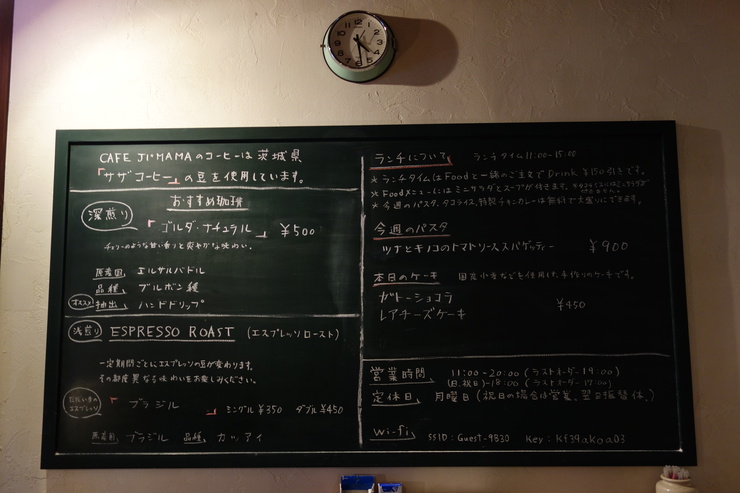 CAFE JI*MAMAのコーヒーは茨城県
「サザコーヒー」の豆を使用しています。
おすすめ珈琲
深煎り
「ゴルダ・ナチュラル」 ¥500
チェリーのような甘い香りと爽やかな味わい。
原産国 エルサルバドル
品種 ブルボン種
オススメ 抽出 ハンドドリップ
浅煎り ESPRESSO ROAST (エスプレッソロースト)
一定期間ごとにエスプレッソの豆が変わります。
その都度異なる味わいをお楽しみください。
ただいまのエスプレッソ
「ブラジル」 シングル¥350 ダブル¥450
原産国 ブラジル 品種 カツアイ
ランチについて ランチタイム11:00-15:00
*ランチタイムはFoodと一緒のご注文でDrink ¥150引きです。
*Foodメニューにはミニサラダとスープが付きます。
*今週のパスタ、タコライス、特製チキンカレーは無料で大盛りにできます。
今週のパスタ
ツナとキノコのトマトソーススパゲッティー ¥900
本日のケーキ 国産小麦などを使用した手作りのケーキです。
ガトーショコラ
レアチーズケーキ
¥450
営業時間 11:00-20:00 (ラストオーダー19:00)
(日.祝日)-18:00 (ラストオーダー17:00)
定休日 月曜日(祝日の場合は営業、翌日振替休)
wi-fi SSID:Guest-9830 Key:kf39akoa03